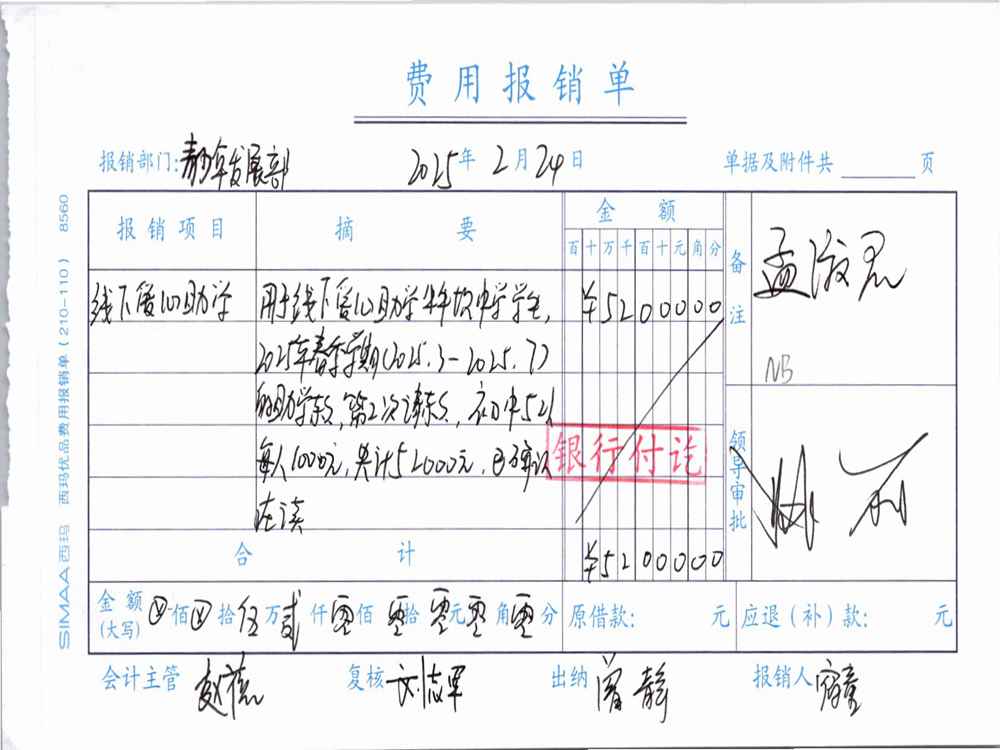 费用报销单
报销部门:青少年发展部 2025年 2月 24日 单据及附件共 页
报销项目 摘要 金额 备注
百十万千百十元角分
线下爱心助学 用于线下爱心助学牛坎中学学生, ¥5200000
2025年春季学期(2025.3-2025.7)
的助学款,第2次请款,初中52人
每人1000元,共计52000元,已确认
在读
银行付讫
孟淑君
领导审批
合计 ¥5200000
金额(大写) 佰 拾伍万贰仟零佰零拾零元零角零分 原借款: 元 应退(补)款: 元
会计主管 复核 刘志军 出纳 曾静 报销人
SIMAA西玛 西玛优品费用报销单(210-110) 8560